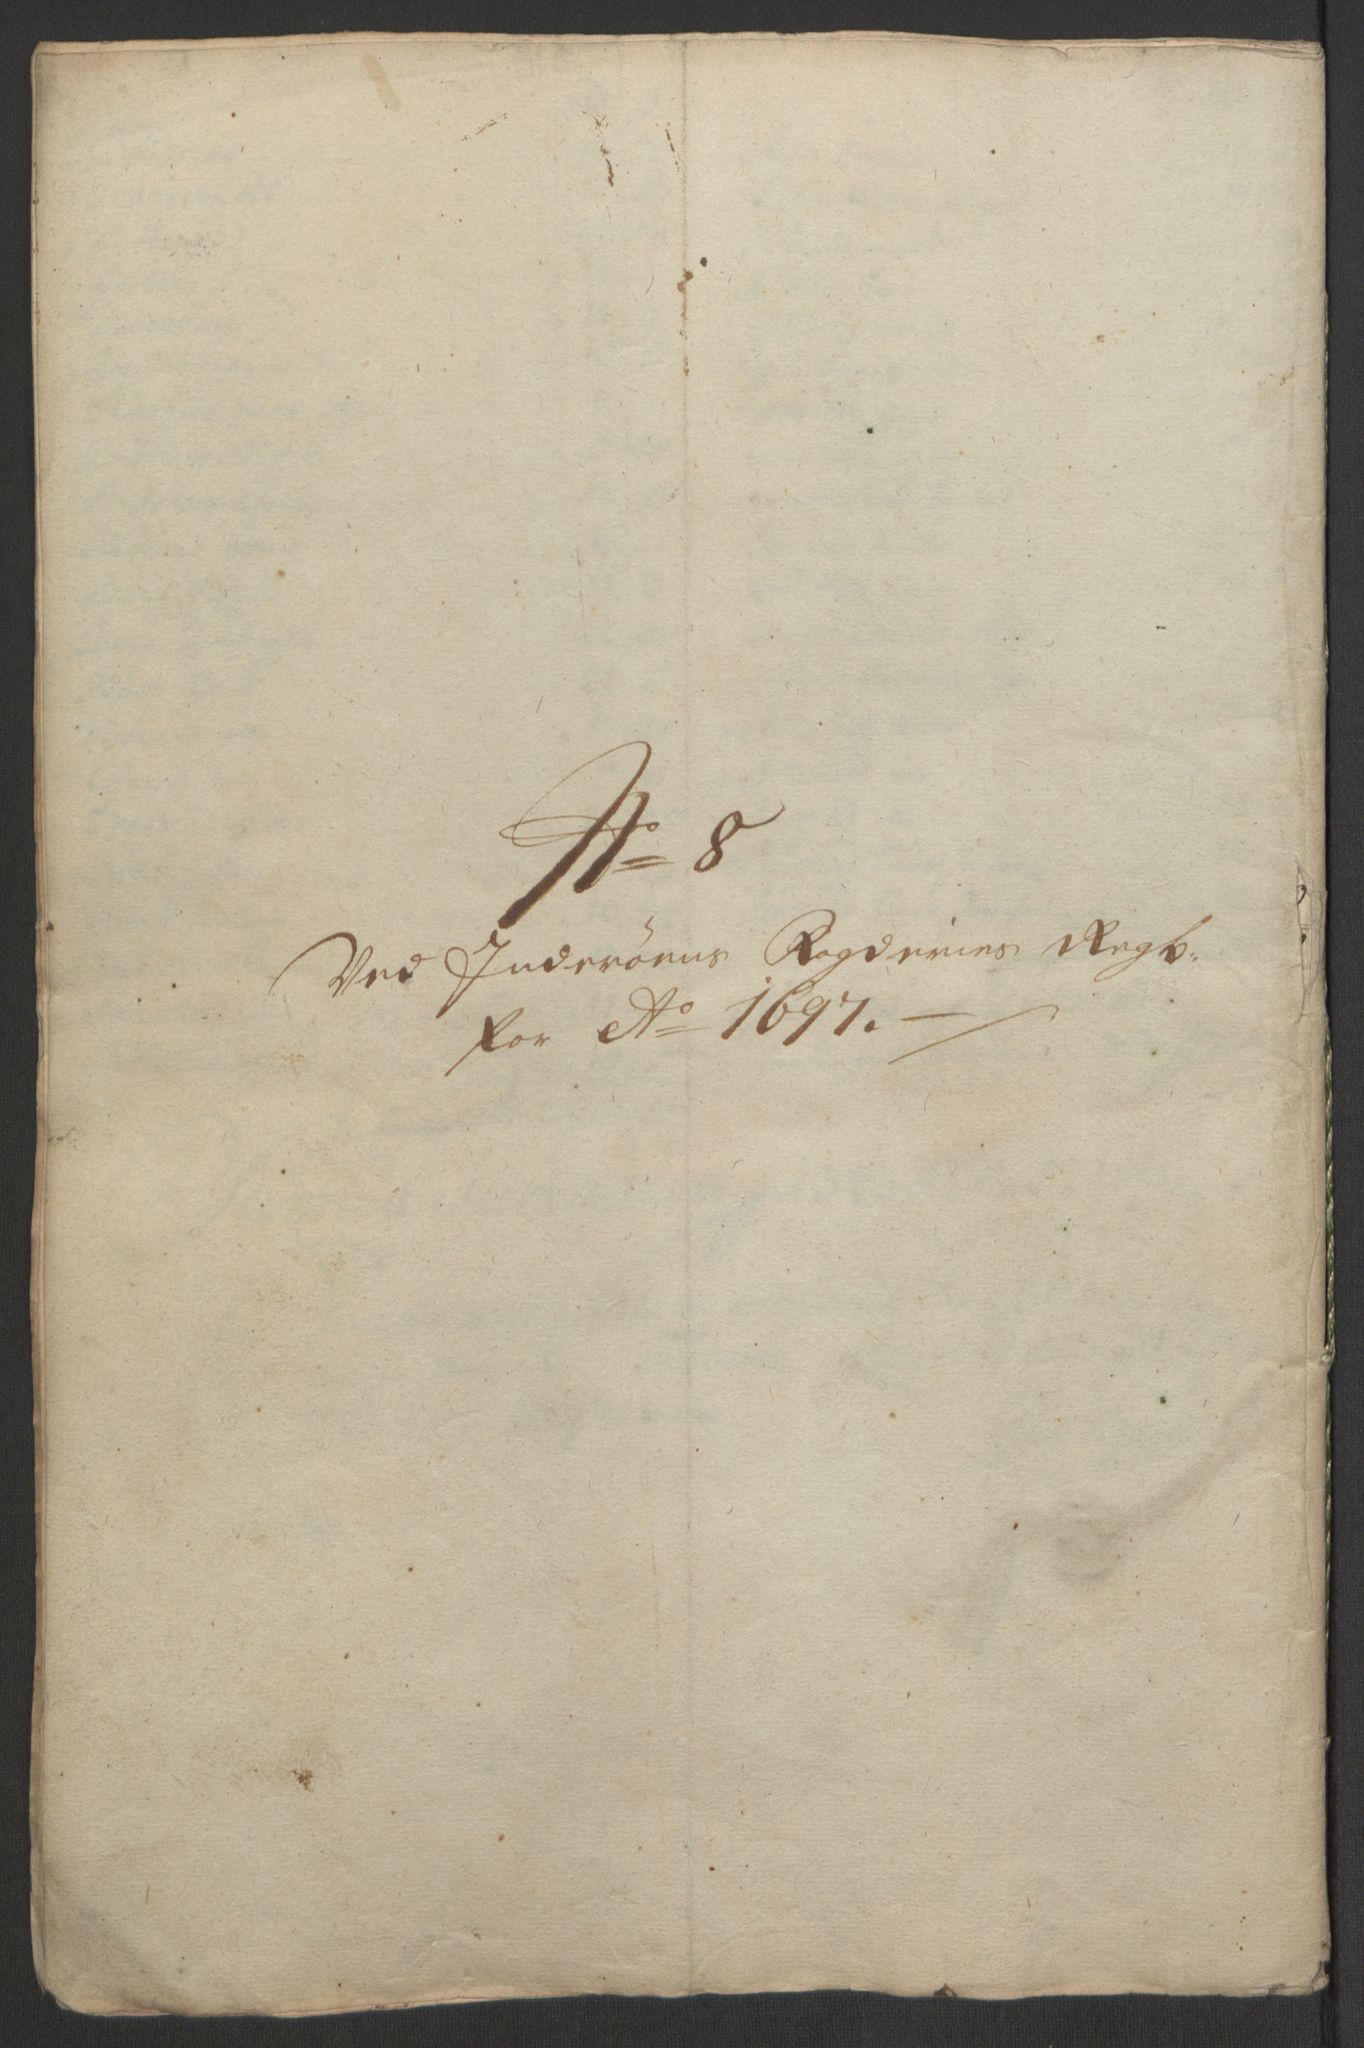 No 8
Ved Inderöens Fogderies Regb:
for Ao 1697. —